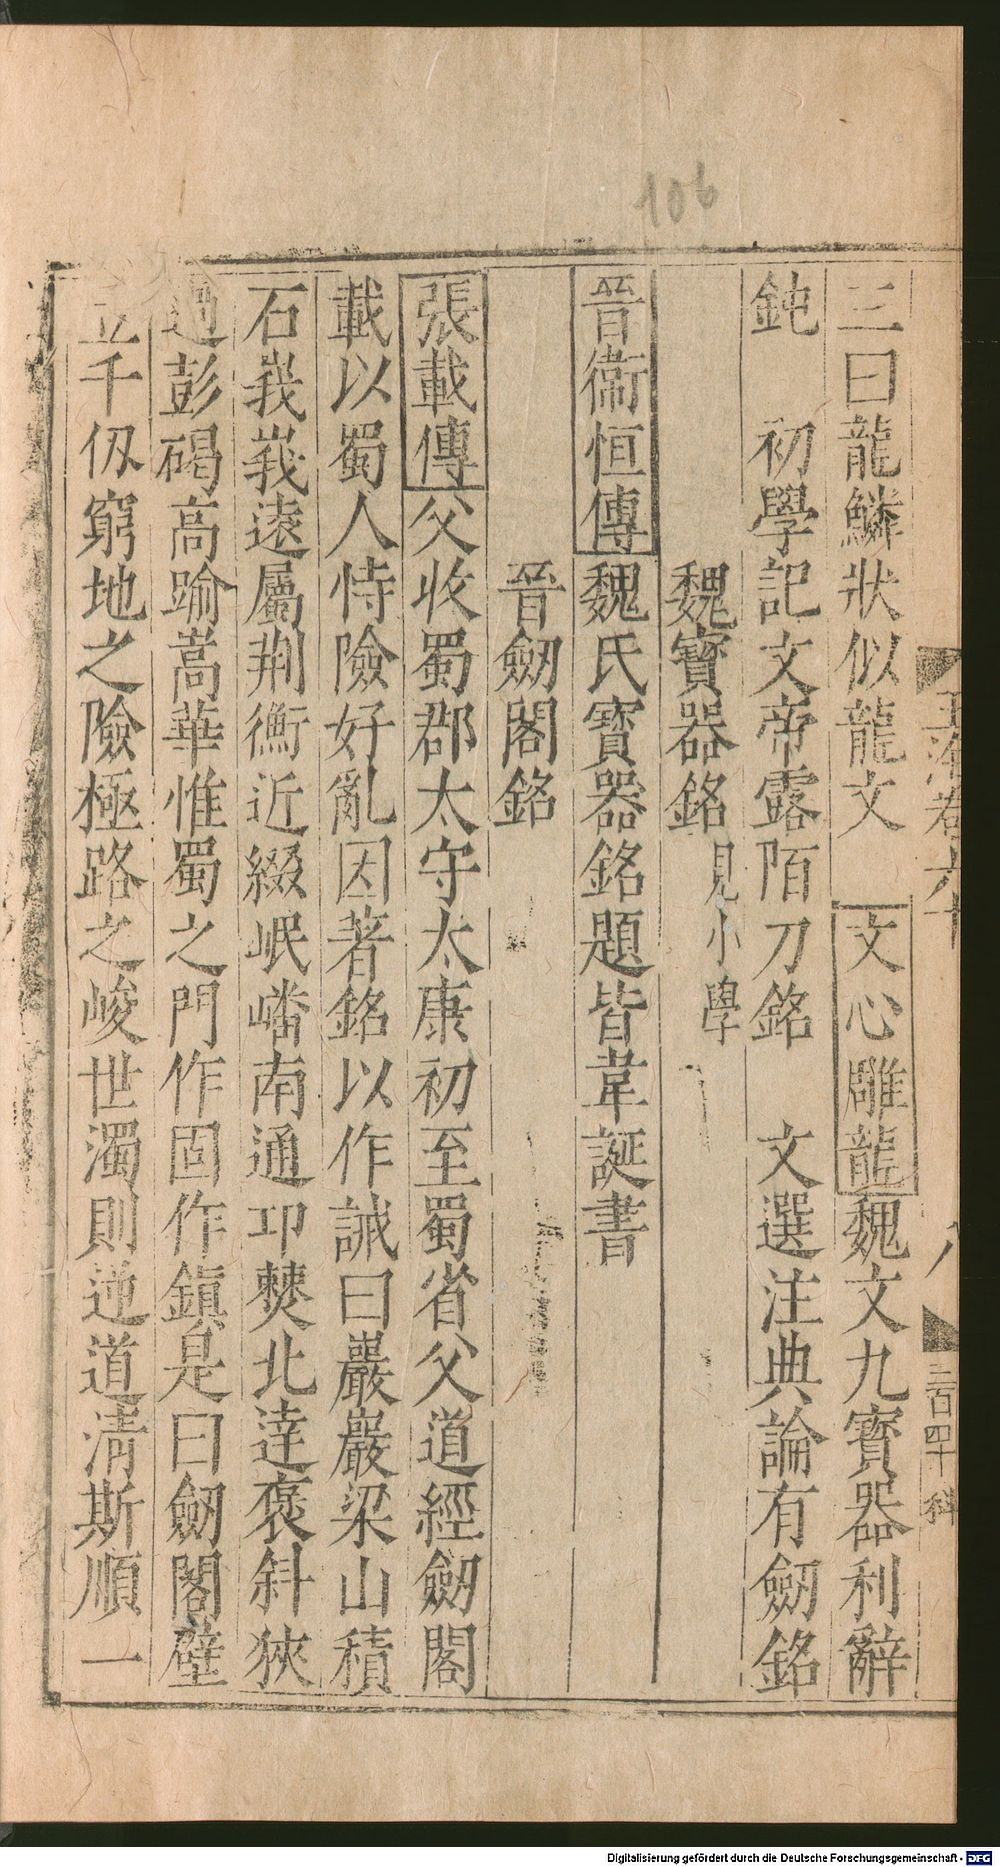 106
玉海卷六十
八
三百四十 科
三曰龍鱗狀似龍文 文心雕龍魏文九寳器利辭
鈍 初學記文帝露陌刀銘 文選注典論有劒銘
魏寳器銘見小學
晉衞恒傳魏氏寳器銘題皆韋誕書
晉劒閣銘
張載傳父收蜀郡太守太康初至蜀省父道經劒閣
載以蜀人恃險好亂因著銘以作誡曰巖巖梁山積
石峩峩遠屬荆衡近綴岷嶓南通卭僰北達褒斜狹
過彭碣高踰嵩華惟蜀之門作固作鎮是曰劒閣壁
立千仭窮地之險極路之峻世濁則逆道清斯順一
Digitalisierung gefördert durch die Deutsche Forschungsgemeinschaft - DFG